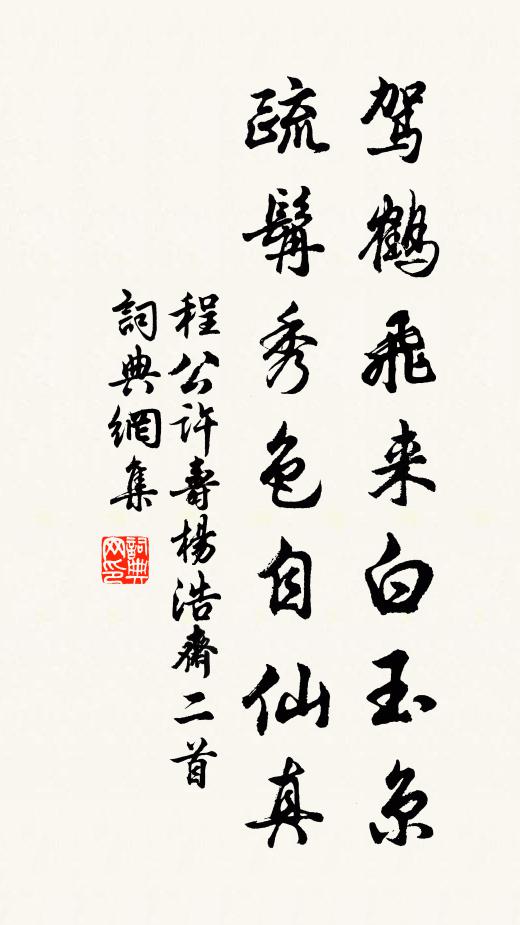 駕鶴飛来白玉京
疏髯秀色自仙真
程公許壽楊浩齋二首
詞典網集
詞典
网印